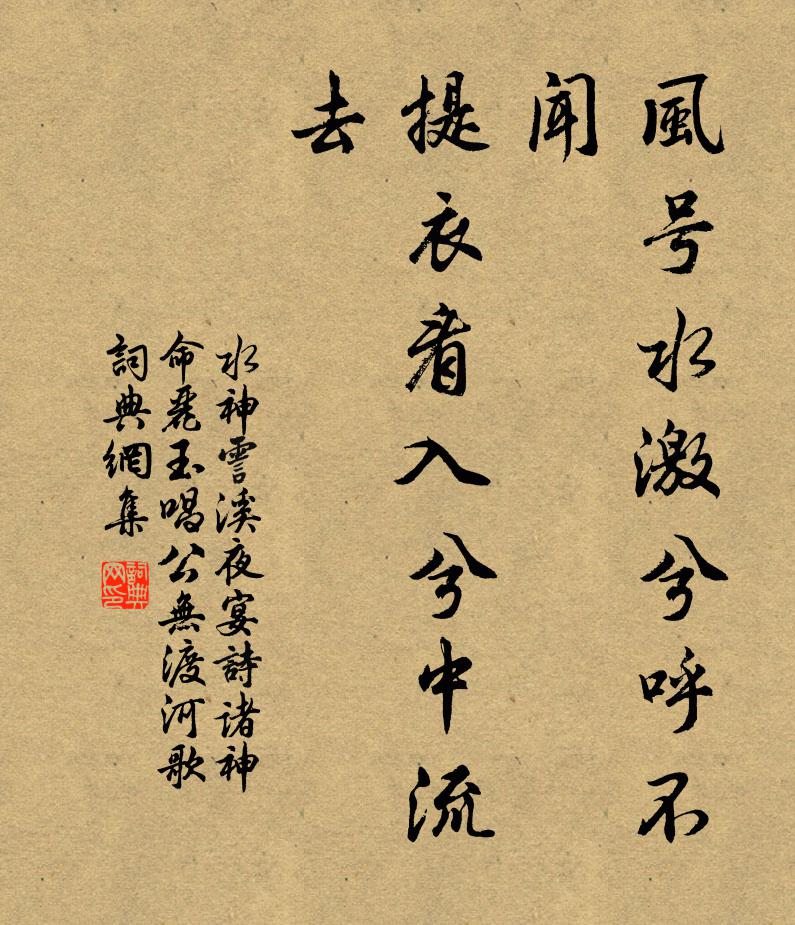 風号水激兮呼不
聞
提衣看入兮中流
去
水神霅溪夜宴詩諸神
命麗玉唱公無渡河歌
詞典網集
詞典
网印